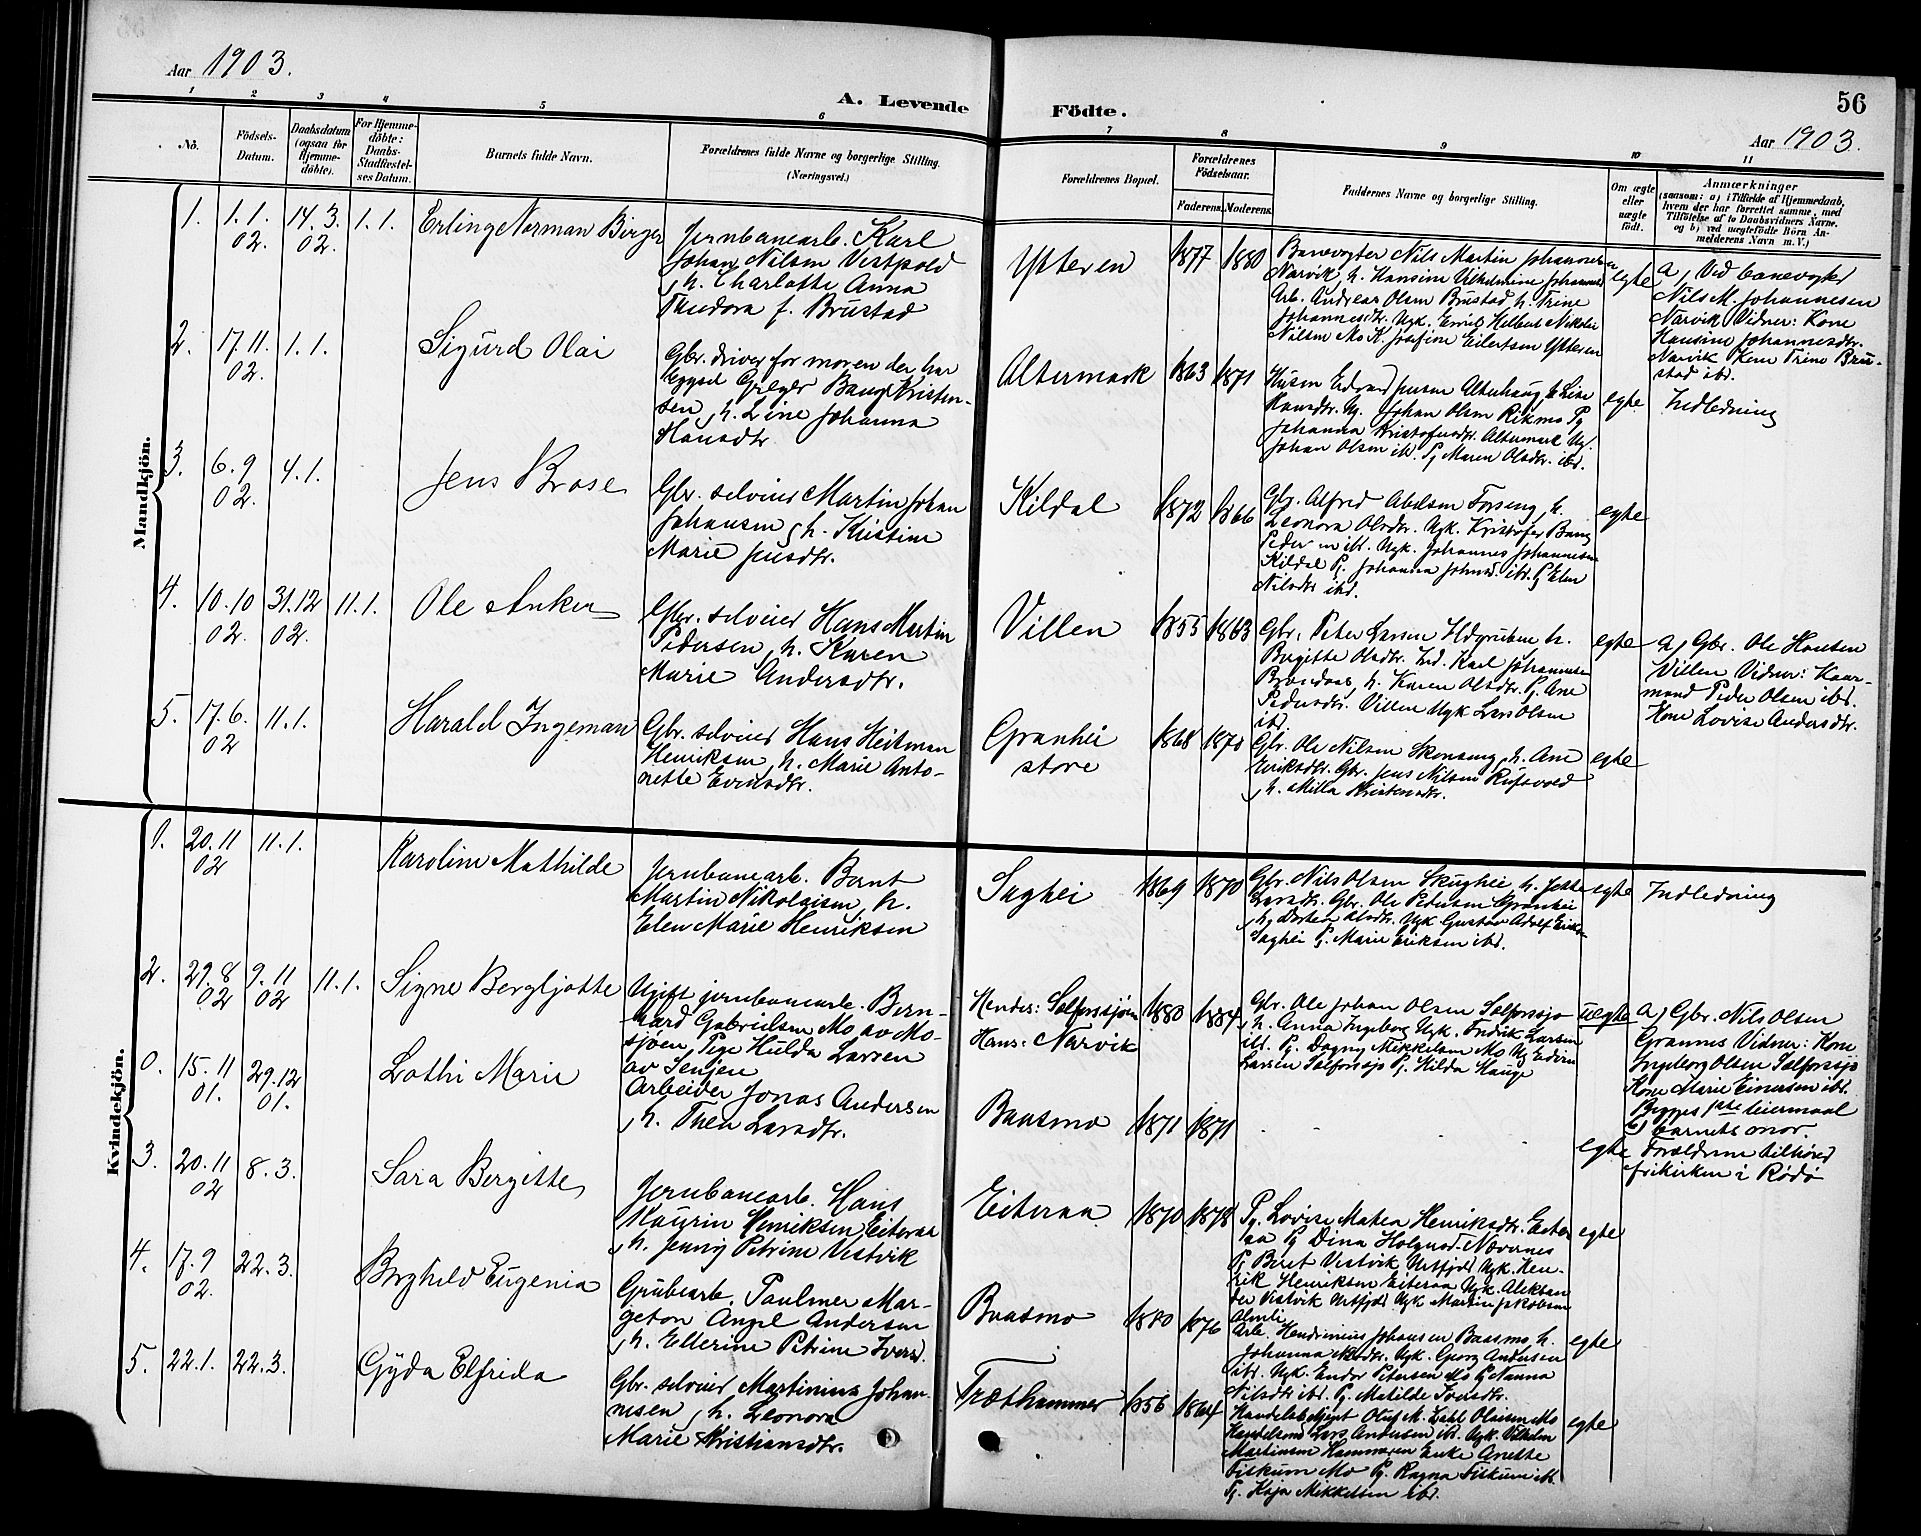 Aar 1903.
A. Levende Födte.
56
Aar 1903.
1 2 3 4 5 6 7 8 9 10 11
No.
Födsels-Datum.
Daabsdatum (ogsaa for Hjemme-döbte).
For Hjemme-döbte: Daabs-Stadfæstel-ses Datum.
Barnets fulde Navn.
Forældrenes fulde Navne og borgerlige Stilling.
(Næringsvei.)
Forældrenes Bopæl.
Forældrenes Födselsaar.
Faderens. Moderens.
Faddernes Navne og borgerlige Stilling.
Om ægte eller uægte födt.
Anmærkninger
(saasom: a) i Tilfælde af Hjemmedaab,
hvem der har forrettet samme, med
Tilföielse af to Daabsvidners Navne.
og b) ved uægtefödte Börn An-
melderens Navn m. V.)
Mandkjön.
1. 1.1. 02. 14.3. 02. 1.1. Erling Norman Birger
Jernbanearb. Karl
Johan Nilsen Vestvold
h. Charlotte Anna
Theodora f. Brustad
Ytteren 1877 1880
Banevogter Nils Martin Johannesen
Narvik, h. Hansine Vilhelmine Johannes
Arb. Andreas Olsen Brustad h. Trine
Johannesdtr. Ugk. Emil Helbert Nikolai
Nilsen Mo K. Josefine Eilertsen Ytteren
egte
a, Ved banevogter
Nils M. Johannesen
Narvik Vidner: Kone
Hansine Johannesdtr.
Narvik Kone Trine Bru-
stad ibd.
2. 17.11. 02. 1.1. Sigurd Olai
Gbr. driver for moren der har
bygsel Greger Bang Kristen-
sen, h. Line Johanna
Hansdtr.
Altermark 1863 1871
Johan Olsen Rikmo Pg
Johanna Kristofersdtr. Altermark Ug.
Johan Olsen ibd. Pg Maren Olsdtr. ibd.
egte Indledning
3. 6.9 02. 4.1. Jens Brose
Gbr. selveier Martin Johan
Johansen, h. Kristine
Marie Jensdtr.
Kildal 1872 1866
Gbr. Alfred Abelsen Forseng, h.
Leonora Olsdtr. Ugk. Kristofer Bang
Pedersen ibd. Ugk. Johannes Johannesen
Kildal Pg. Johanna Johnsd. ibd. Pg Elen
Nilsdtr ibd.
egte
4. 10.10 02. 31.12 02. 11.1. Ole Anker
Gbr. selveier Hans Martin
Pedersen, h. Karen
Marie Andersdtr.
Villen 1855 1863
Gbr. Peter Larsen Ildgruben h.
Birgitte Olsdtr. Ind. Karl Johannesen
h. Karen Olsdtr. Pg. Ane
Pedersdtr. Villen Ugk Lars Olsen
ibd.
egte
a, Gbr. Ole Hansen
Villen Vidner: Kaar-
mand Peder Olsen ibd.
Kone Lovise Andersdtr.
5. 17.6. 02 11.1. Harald Ingeman
Gbr. selveier Hans Heitman
Henriksen, h. Marie Anto-
nette Evensdtr.
Granhei store 1868 1870
Gbr. Ole Nilsen Skonseng, h. Ane
Eriksdtr. Gbr. Jens Nilsen Rufsvold
h. Milla Kristensdtr.
egte
Kvindekjön.
1. 20.11 02 11.1. Karoline Mathilde
Jernbanearb. Bernt
Martin Nikolaisen, h.
Elen Marie Henriksen
Saghei 1869 1870
Gbr. Nils Olsen Skughei, h. Jette
Larsdtr. Gbr. Ole Pedersen Granhei
h. Dorthea Olsdtr. Ugk Gustav Adolf Eriks.
Saghei Pg. Marie Eriksen ibd.
egte Indledning
2. 29.8 02 9.11 02 11.1. Signe Bergljotte
Ugift jernbanearb. Bern-
hard Gabrielsen Mo av Mo-
sjøen, Pige Hulda Larsen
av Senjen
Hendes: Selforssjøen
Hans: Narvik 1880 1884
Gbr. Ole Johan Olsen Selforssjø
h. Anna Ingeborg Ugk. Fredrik Larsen
ibd. Pg. Dagny Mikkelsen Mo Ug Edvin
Larsen Selforssjø Pg. Hilda Hauge
uegte
a, Gbr. Nils Olsen
Grannes Vidner: Kone
Ingeborg Olsen Selforssjø
Kone Marie Einersen ibd.
Begges 1ste leiermaal
b) barnets mor.
0. 15.11 01. 29.12 01. Lothi Marie
Arbeider Jonas Andersen
h. Thea Larsdtr.
Baasmo 1871 1871
egte
Forældrene tilhører
frikirken i Rødø
3. 20.11 02 8.3. Sara Bergitte
Jernbanearb. Hans
Kaurin Henriksen Eiteraa
h. Jenny Petrine Vestvik
Eiteraa 1870 1878
Pg. Lovise Matea Henriksdtr. Eiter-
aa Pg Dina Holgersd. Nævernes
Pg Beret Vestvik Utfjord Ugk. Hen-
rik Henriksen Eiteraa Ugk. Aleksan-
der Vestvik Utfjord Ugk Martin Jakobsen
Almli
egte
4. 17.9 02. 22.3. Borghild Eugenia
Grubearb. Paulmer Mar-
geton Angel Andersen
h. Ellerine Petrine Ivers.
Baasmo 1880 1876
Arb. Hendinius Johansen Baasmo h.
Johanna Ugk. Georg Andersen
ibd. Ugk. Endor Petersen Mo Pg Nanna
Nilsdtr ibd. Pg. Matilde Iversdtr.
egte
5. 22.1. 22.3. Gyda Elfrida
Gbr. selveier Martinius Johan-
nesen, h. Leonora
Marie Kristiansdtr.
Træthammer 1856 1864
Handelsbetjent Oluf M. Dahl Olaisen Mo
Handelsmd Lars Andersen ibd. Ugk. Vilhelm
Martinsen Hammeren Enke Anette
Fiskum Mo Pg. Ragna Fiskum ibd.
Pg. Kaja Mikkelsen ibd.
egte